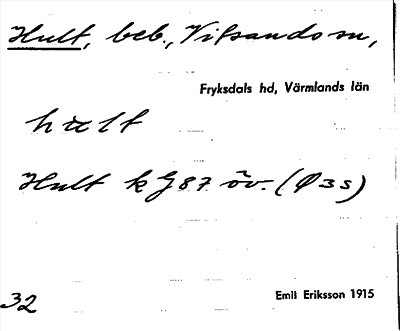 Hult, beb., Vitsands sn,
Fryksdals hd, Värmlands län
hult
Hult k G87 öv. (Ø 3s)
Emil Eriksson 1915
32